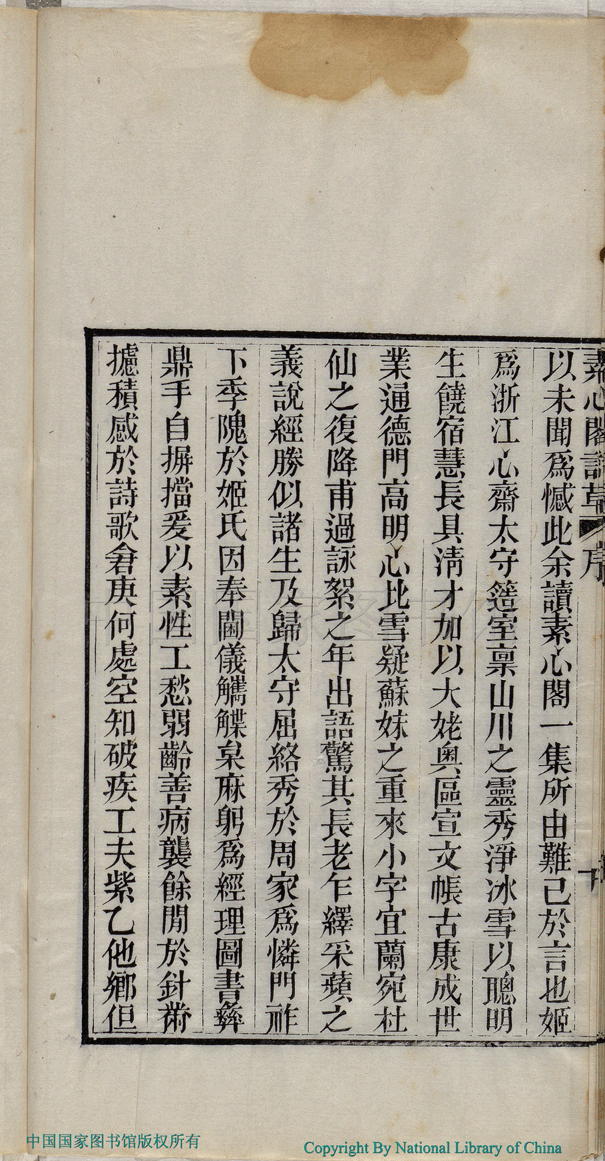 素心閣詩草 序
以未聞爲憾此余讀素心閣一集所由難已於言也姬
爲浙江心齋太守簉室稟山川之靈秀淨冰雪以聰明
生饒宿慧長具淸才加以大姥奧區宣文帳古康成世
業通德門高明心比雪疑蘇妹之重來小字宜蘭宛杜
仙之復降甫過詠絮之年出語驚其長老乍繹采蘋之
義說經勝似諸生及歸太守屈絡秀於周家爲憐門祚
下季隗於姬氏因奉閫儀觿韘枲麻躬爲經理圖書彝
鼎手自摒擋爰以素性工愁弱齡善病襲餘閒於針黹
攄積感於詩歌倉庚何處空知破疾工夫紫乙他鄉但
中国国家图书馆版权所有
Copyright By National Library of China